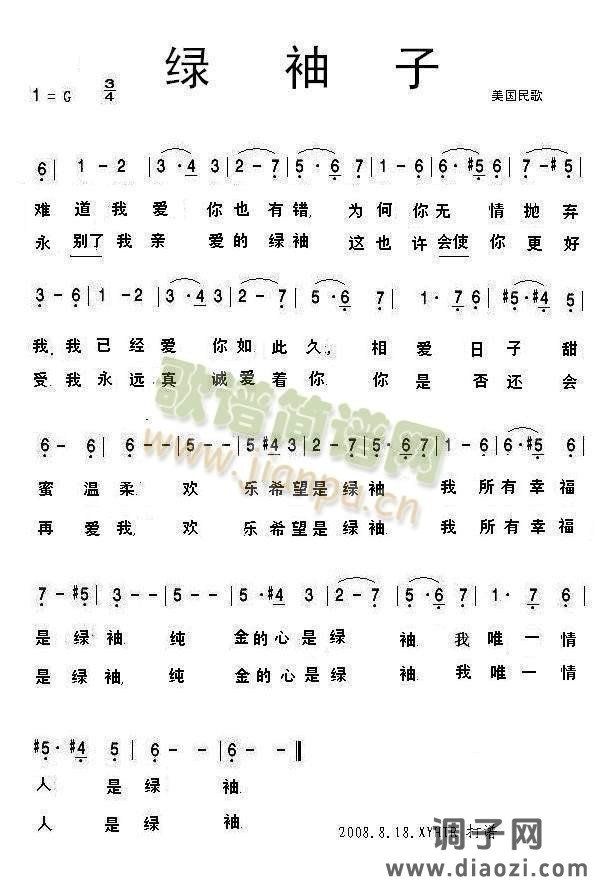 绿袖子
1=G 3/4
美国民歌
6 | 1 - 2 | 3 · 4 3 | 2 - 7 | 5 · 6 7 | 1 - 6 | 6 · #5 6 | 7 - #5 |
难道我爱 你也有错, 为何你无 情抛弃
永 别了我亲 爱的绿袖 这也许会使你更好
3 - 6 | 1 - 2 | 3 · 4 3 | 2 - 7 | 5 · 6 7 | 1 · 7 6 | #5 · #4 5 |
我,我已经爱 你如此久, 相爱日子甜
受,我永远真 诚爱着你 你是否还会
6 - 6 | 6 - - | 5 - - | 5 #4 3 | 2 - 7 | 5 · 6 7 | 1 - 6 | 6 · #5 6 |
蜜温柔 欢 乐希望是绿袖 我所有幸福
再爱我, 欢 乐希望是绿袖. 我所有幸福
7 - #5 | 3 - - | 5 - - | 5 · #4 3 | 2 - 7 | 5 · 6 7 | 1 · 7 6 |
是绿袖 纯 金的心是绿 袖 我唯一情
是绿袖, 纯 金的心是绿 袖 我唯一情
#5 · #4 5 | 6 - - | 6 - - ‖
人 是绿 袖
人 是绿 袖
歌谱简谱网
www.jianpu.cn
2008.8.18. 打谱
调子网
www.diaozi.com